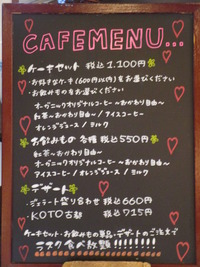 CAFEMENU...
ケーキセット 税込1,100円
・お好きなケーキ(600円以内)をお選びください
・お飲みものをお選びください
オーガニックオリジナルコーヒー〜おかわり自由〜
紅茶〜おかわり自由〜/アイスコーヒー
オレンジジュース/ミルク
お飲みもの各種 税込550円
紅茶〜おかわり自由〜
オーガニックオリジナルコーヒー〜おかわり自由〜
アイスコーヒー/オレンジジュース/ミルク
デザート
・ジェラート盛り合わせ 税込660円
・KOTO古都 税込715円
ケーキセット・お飲みもの単品・デザートのご注文で
ラスク食べ放題!!!!!!!!!